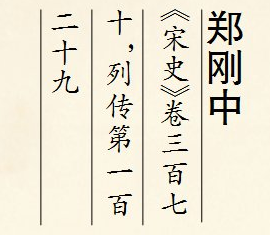 郑刚中
《宋史》卷三百七
十，列传第一百
二十九